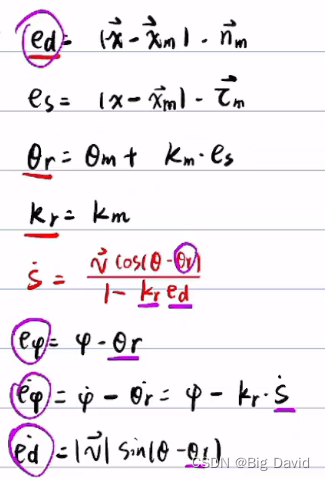 ed = (x⃗ - x⃗m) · n⃗m
es = (x - x⃗m) - τ⃗m
θr = θm + km · es
kr = km
ṡ = v⃗ cos(θ - θr) / 1 - kr ed
eφ = φ - θr
ėφ = φ̇ - θ̇r = φ - kr · ṡ
ėd = |v⃗| sin(θ - θr)
CSDN @Big_David